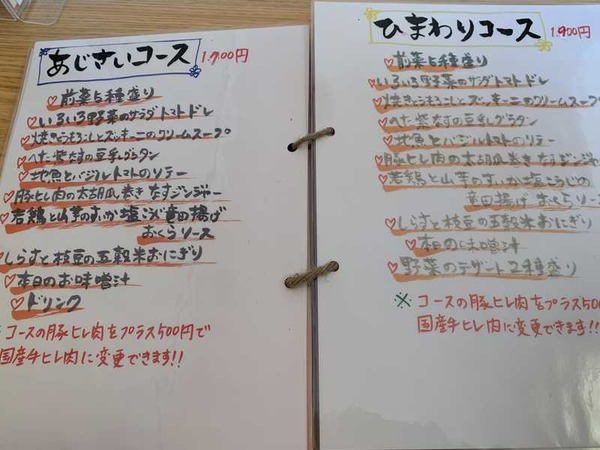 あじさいコース 1.700円
♡前菜5種盛り
♡いろいろ野菜のサラダトマトドレ
♡焼きとうもろこしとズッキーニのクリームスープ
♡へた紫なすの豆乳グラタン
♡地魚とバジルトマトのソテー
♡豚ヒレ肉の太胡瓜巻きなすジンジャー
♡若鶏と山芋のすいか塩こうじ竜田揚げ
おくらソース
♡しらすと枝豆の五穀米おにぎり
♡本日のお味噌汁
♡ドリンク
※コースの豚ヒレ肉をプラス500円で
国産牛ヒレ肉に変更できます!!
ひまわりコース 1.900円
♡前菜5種盛り
♡いろいろ野菜のサラダトマトドレ
♡焼きとうもろこしとズッキーニのクリームスープ
♡へた紫なすの豆乳グラタン
♡地魚とバジルトマトのソテー
♡豚ヒレ肉の太胡瓜巻きなすジンジャー
♡若鶏と山芋のすいか塩こうじの
竜田揚げおくらソース
♡しらすと枝豆の五穀米おにぎり
♡本日のお味噌汁
♡野菜のデザート2種盛り
※コースの豚ヒレ肉をプラス500
国産牛ヒレ肉に変更できます!!